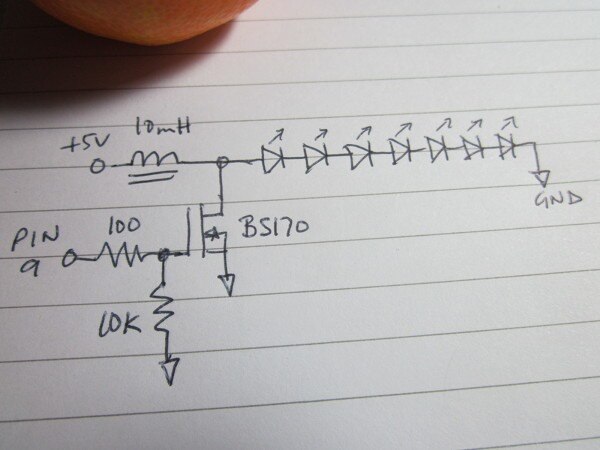 +5V
10mH
GND
PIN
9
100
BS170
10K